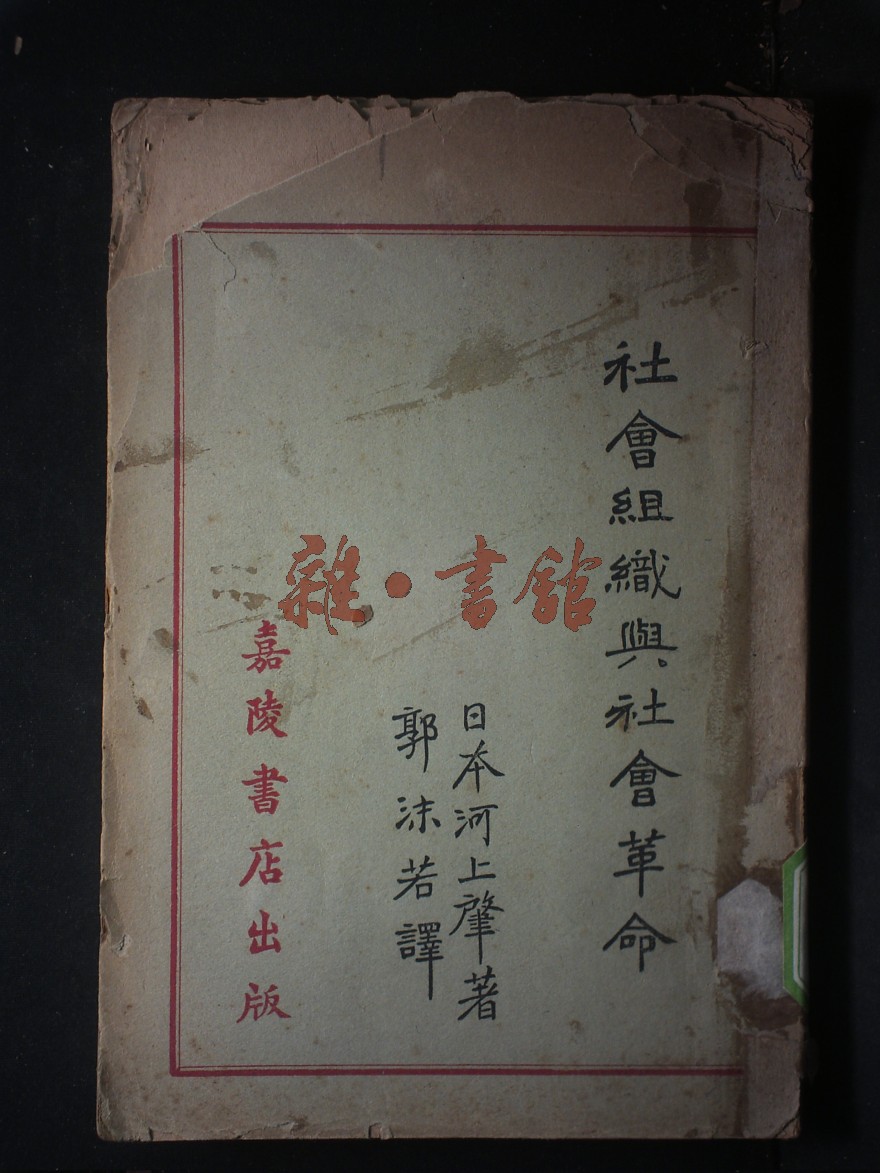 社會組織與社會革命
日本河上肇著
郭沫若譯
嘉陵書店出版
雜·書館